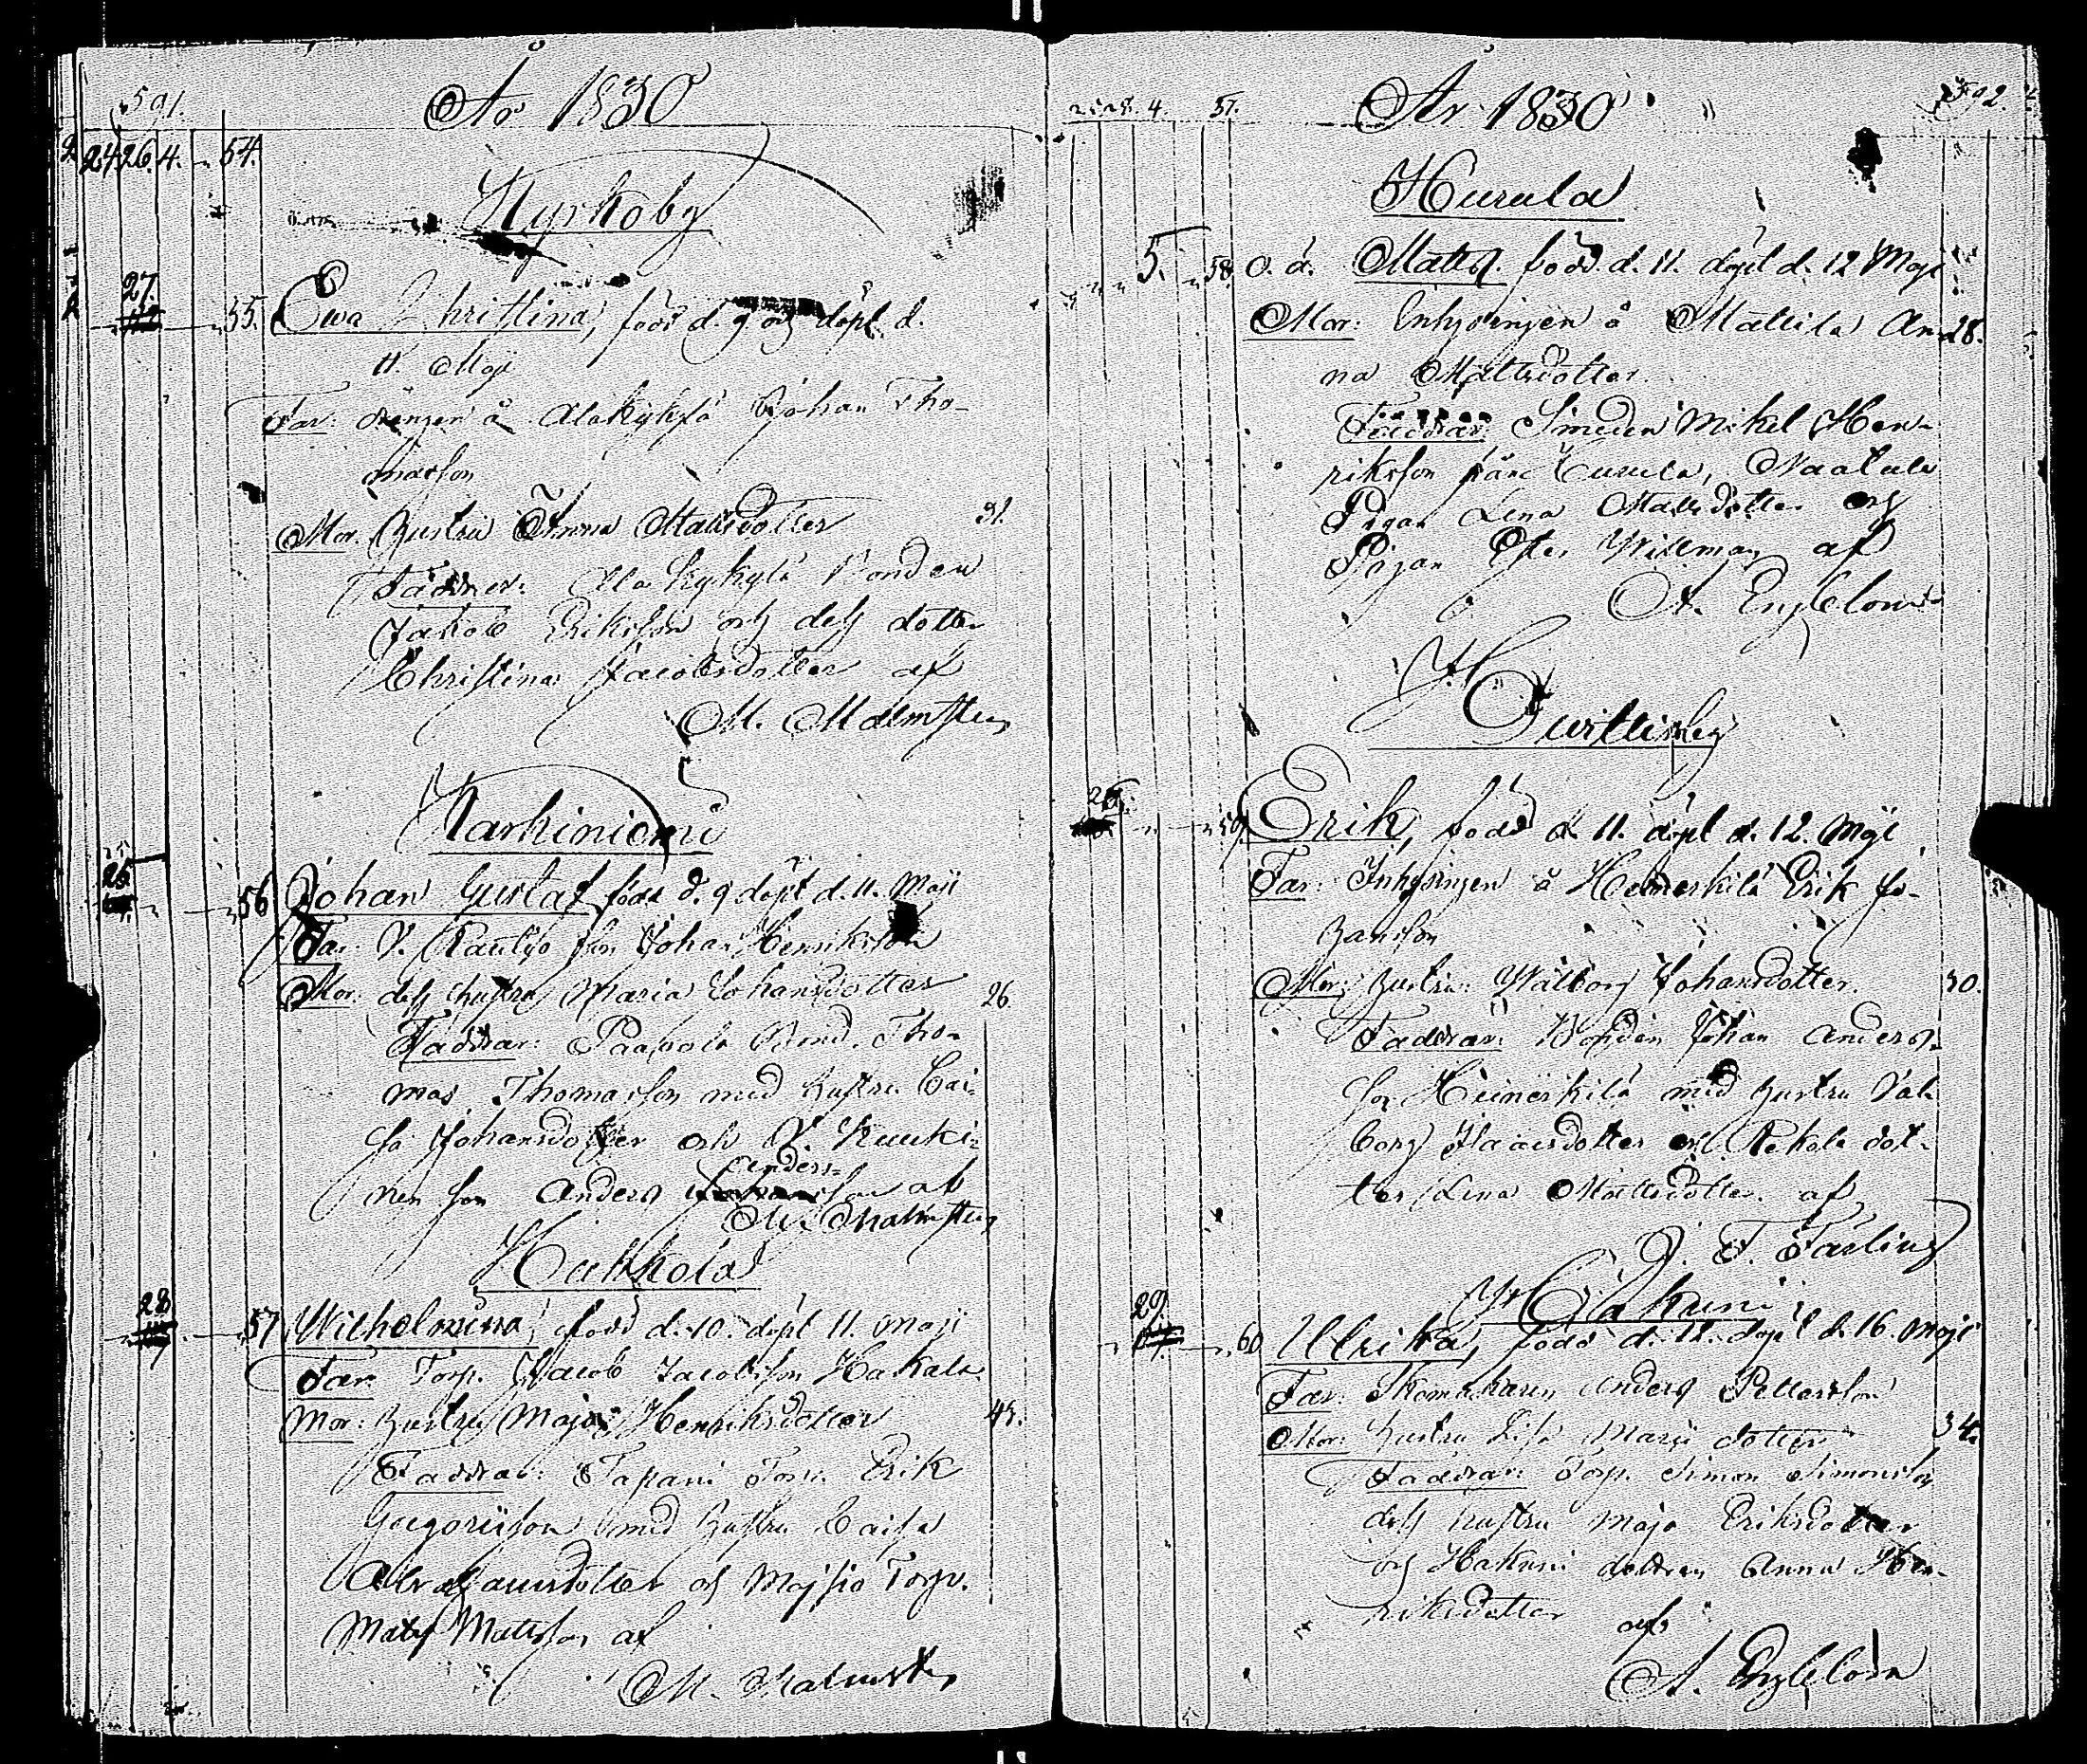 591.
År 1830
2 24 26. 4. 54.
Kyrkoby
27.
55. Ewa Christina, född d. 9 och döpt d.
11. Maji
Far: drengen å Alakylylä Johan Tho-
masson
Mor. Hustru Anna Mattsdotter 31.
Faddrar: Ala kylylä Bonden
Jakob Eriksson och dess dotter
Christina Jacobsdotter af
M. Malmsten
Karhiniemi
26.
56 Johan Gustaf född d. 9 döpt d. 11. Maji
Far: Son Johan Henriksson
Mor: dess hustru Maria Johansdotter 26.
Faddrar: Paavola Bond. Tho-
mas Thomasson med hustru Cai-
sa Johansdotter och Kuuki-
nen son Anders Anders-
son af
M. Malmsten
Huhkola
28
57 Wilhelmina, född d. 10. döpt 11. Maji
Far: Torp. Jacob Jacobsson Hakala
Mor: Hustru Maja Henriksdotter 43.
Faddrar: Tapani Torp. Erik
Gregorisson med hustru Caisa
Abrahamsdotter och Torp.
Matts Mattsson af
M. Malmsten
592.
25 28. 4. 57.
År 1830
Hurula
5. 58. O. ä. Matts. född. d. 11. döpt d. 12 Maji
Mor: Inhysingen å Mattila An- 28.
na Mattsdotter.
Faddrar: Smeden Mikel Hen-
riksson från Hurula,
Pigan Lena Mattsdotter och
Pigan Willman af
A. Englblom
Huittisby
59. Erik, född d. 11. döpt d. 12. Maji
Far: Inhysingen å Heinerkilä Erik Jo-
hansson
Mor: Hustru: Walborg Johansdotter. 30.
Faddrar: Bonden Johan Anders-
son Heinerkilä med hustru Val-
borg Isaacsdotter och dot-
ter Lena Mattsdotter. af
J. F. Färling
29.
60 Ulrika, född d. 12. döpt d. 16. Maji
Far: Skomakaren Anders Pettersson
Mor: Hustru Lisa dotter 34.
Faddrar: Torp. Simon Simonsson
dess hustru Maja Eriksdotter
och Hakuni dottren Anna Hen-
riksdotter af
A. Englblom